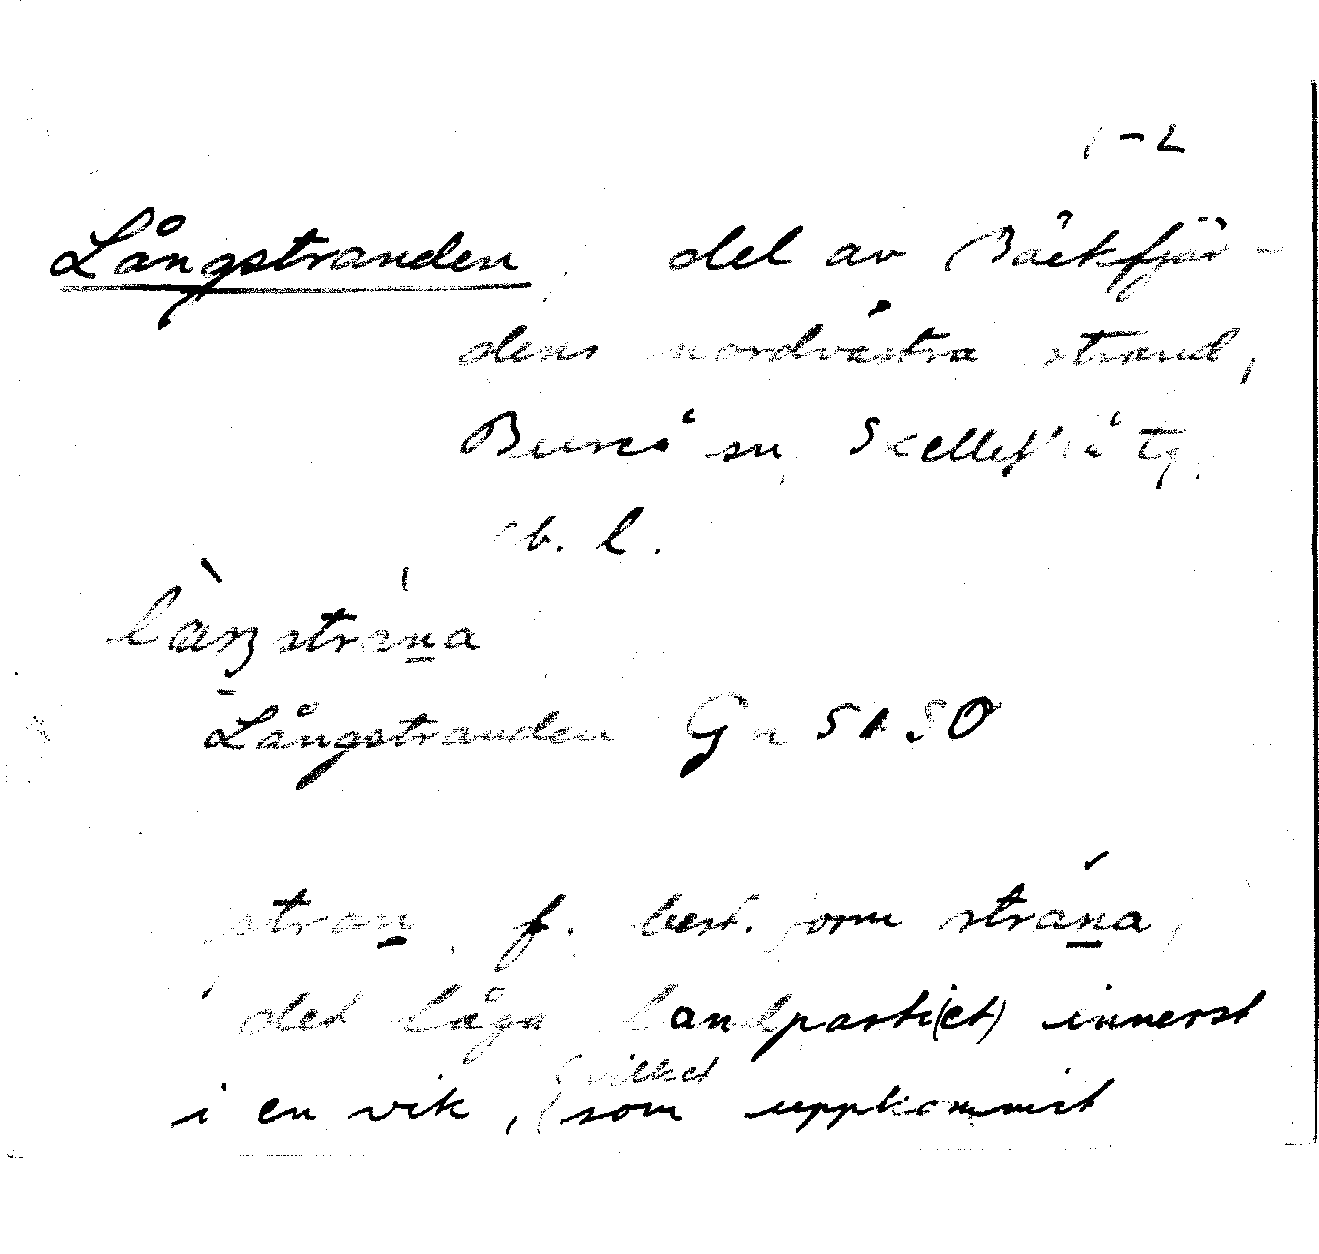 1-2
Långstranden, del av Bäckfjär-
dens nordvästra strand,
Bureå sn, Skellefteå tg,
Vb. l.
làŋstrána
Långstranden Gn 5130
stran, f. best. form strána,
det låga landparti(et) innerst
vilket
i en vik, (som uppkommit